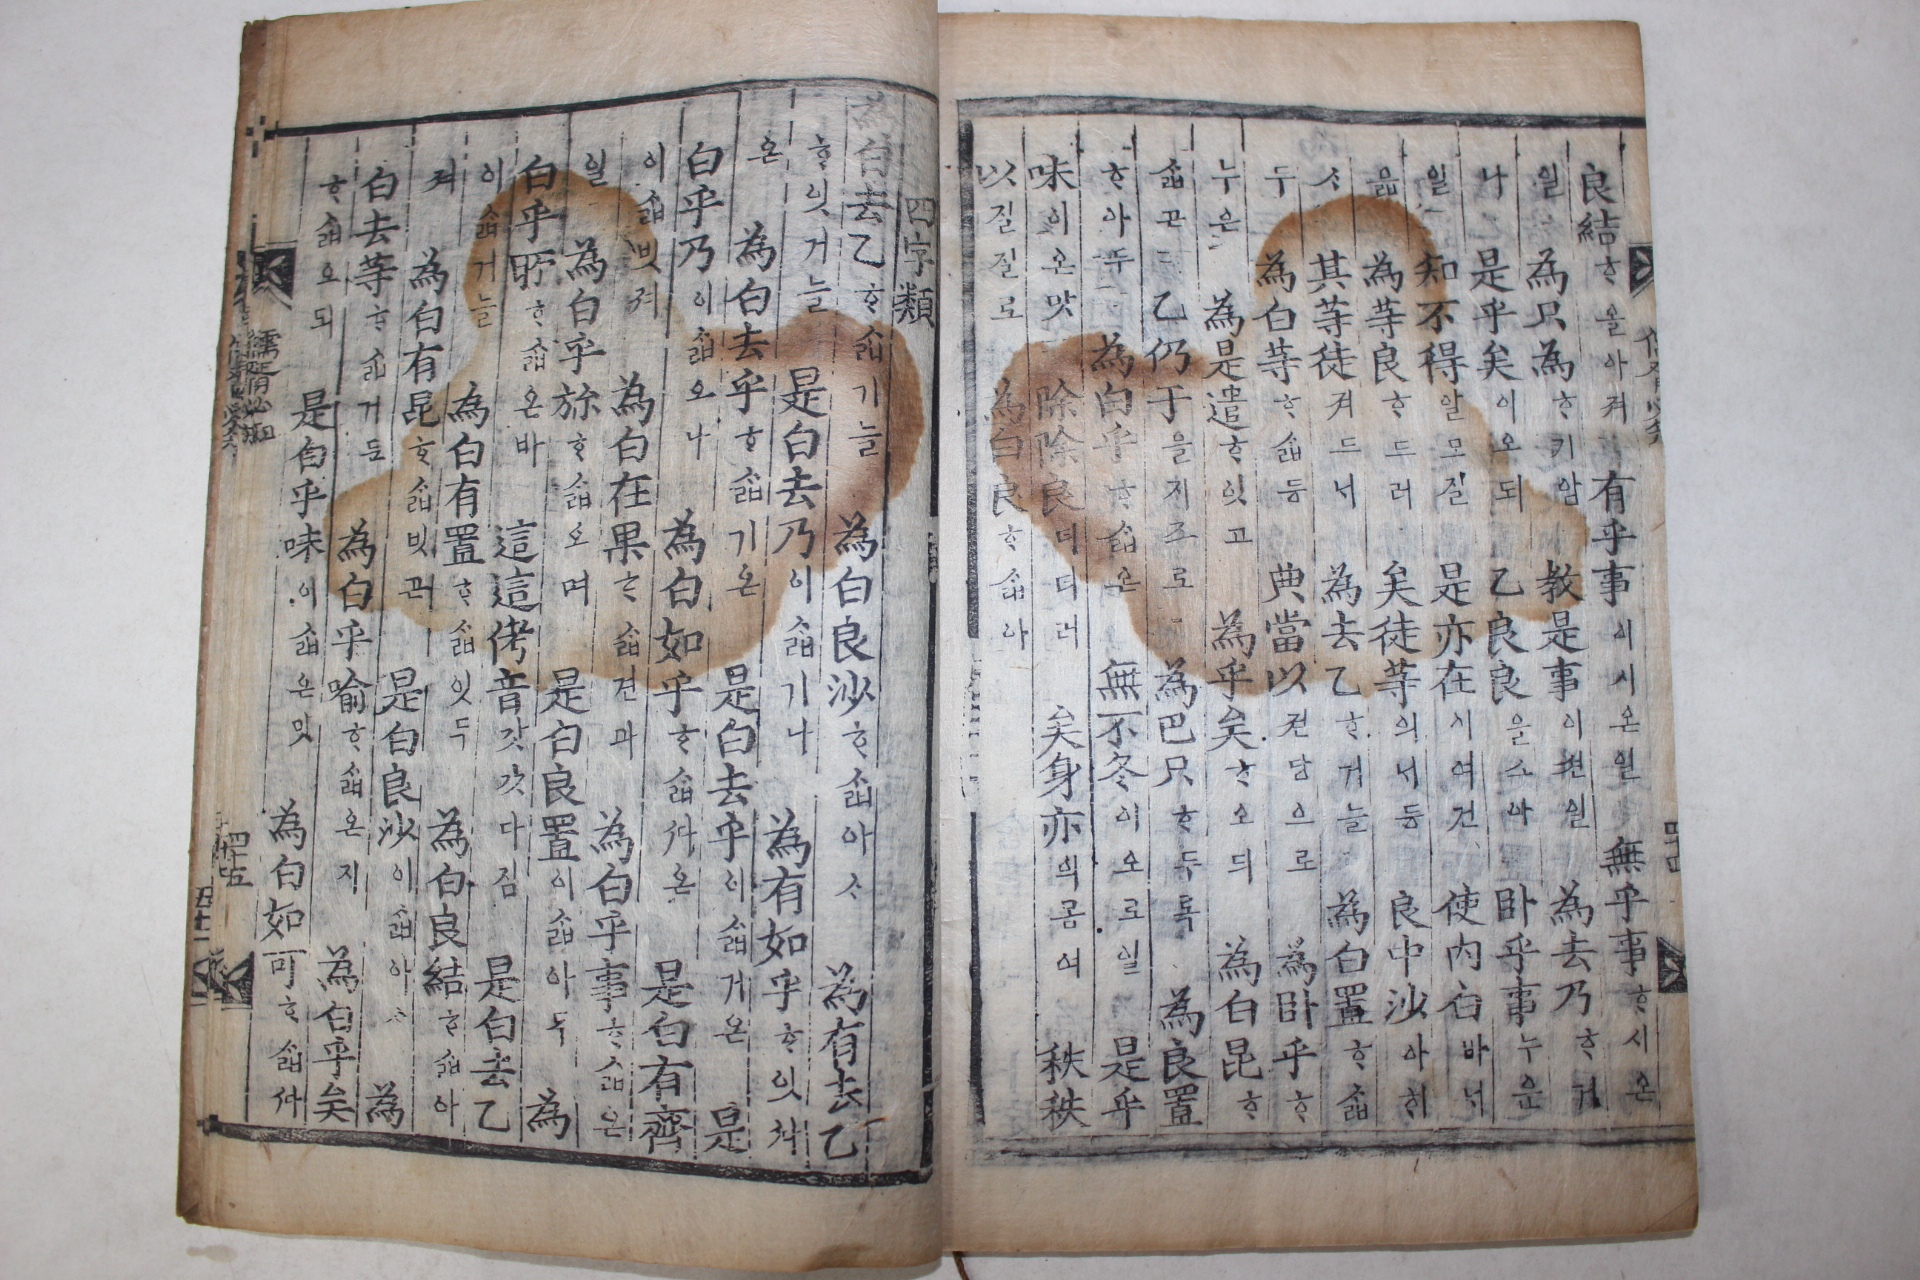 良結ᄒᆞ올아져 有乎事이시온일 無乎事ᄒᆞ시온
일 為只為ᄒᆞ기암 教是事이션일 為去乃ᄒᆞ거
나 是乎矣이오되 乙良良을스아 卧乎事누운
일 知不得알모질 是亦在이여견 使內白바
ᄉᆞᆲ 為等良ᄒᆞ드러 矣徒等의ᄂᆡ등 良中沙아ᄒᆡ
ᄉᆞ 其等徒져드ᄂᆡ 為去乙ᄒᆞ거늘 為白置ᄒᆞᄉᆞᆲ
두 為白等ᄒᆞᄉᆞᆲ등 典當以전당으로 為卧乎ᄒᆞ
누온 為是遣ᄒᆞ잇고 為乎矣ᄒᆞ오되 為白昆ᄒᆞ
ᄉᆞᆲ곤 乙仍于을지즈로 為巴只ᄒᆞ두록 為良置
ᄒᆞ아두 為白乎ᄒᆞᄉᆞᆲ온 無不冬이오로일 是乎
味이온맛 除除良더더러 矣身亦의몸여 秩秩
以질질로 為白良ᄒᆞᄉᆞᆲ아
四字類
為白去乙ᄒᆞᄉᆞᆲ기늘 為白良沙ᄒᆞᄉᆞᆲ아ᄉᆞ 為有去乙
ᄒᆞ잇거늘 是白去乃이ᄉᆞᆲ기나 為有如乎ᄒᆞ잇다
온 為白去乎ᄒᆞᄉᆞᆲ기온 是白去乎이ᄉᆞᆲ거온 是
白乎乃이ᄉᆞᆲ오나 為白如乎ᄒᆞᄉᆞᆲ다온 是白有齊
이ᄉᆞᆲ빗져 為白在果ᄒᆞᄉᆞᆲ견과 為白乎事ᄒᆞᄉᆞᆲ온
일 為白乎旀ᄒᆞᄉᆞᆲ오며 是白良置이ᄉᆞᆲ아두 為
白乎所ᄒᆞᄉᆞᆲ온바 這這侤音갓갓다짐 是白去乙
이ᄉᆞᆲ거늘 為白有置ᄒᆞᄉᆞᆲ잇두 為白良結ᄒᆞᄉᆞᆲ아
져 為白有昆ᄒᆞᄉᆞᆲ빗곤 是白良沙이ᄉᆞᆲ아ᄉᆞ 為
白去等ᄒᆞᄉᆞᆲ거든 為白乎喩ᄒᆞᄉᆞᆲ온지 為白乎矣
ᄒᆞᄉᆞᆲ오되 是白乎味이ᄉᆞᆲ온맛 為白如可ᄒᆞᄉᆞᆲ다